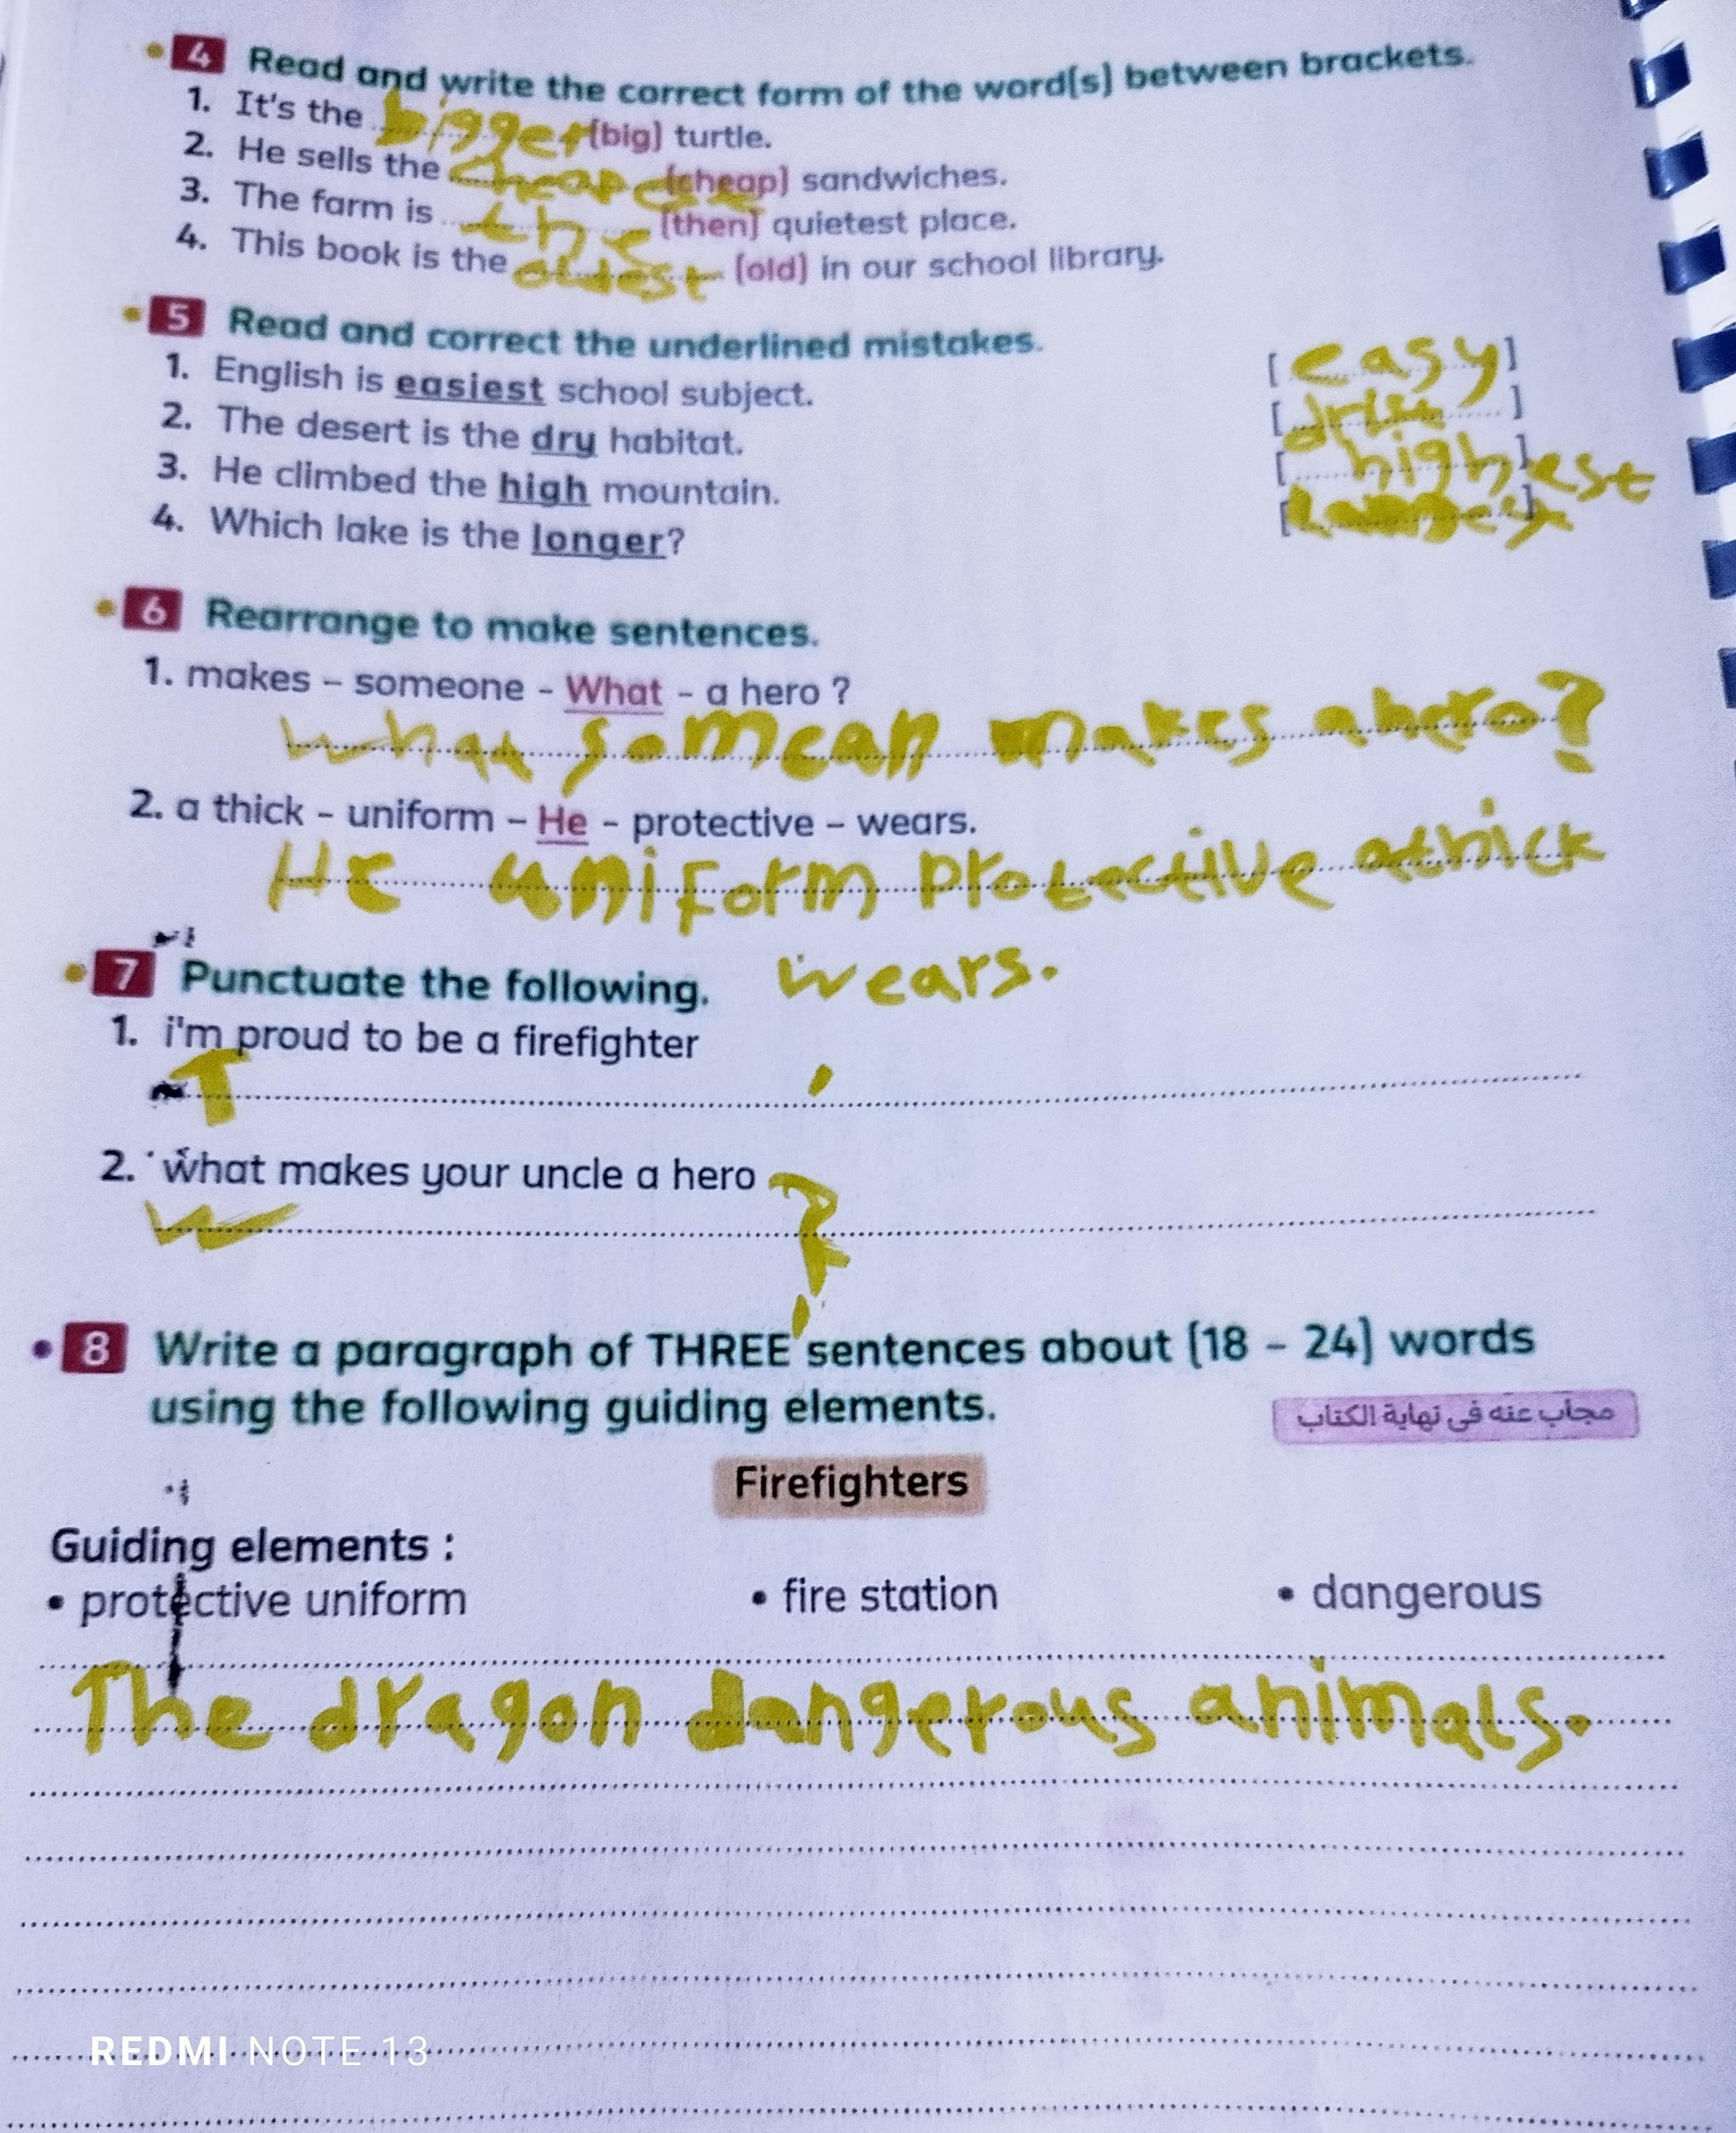 4 Read and write the correct form of the word(s) between brackets.
1. It's the bigger (big) turtle.
2. He sells the cheapest (cheap) sandwiches.
3. The farm is the (then) quietest place.
4. This book is the oldest (old) in our school library.
5 Read and correct the underlined mistakes.
1. English is easiest school subject. [easy]
2. The desert is the dry habitat. [ ]
3. He climbed the high mountain. [highest]
4. Which lake is the longer? [ ]
6 Rearrange to make sentences.
1. makes – someone - What - a hero ?
What somean makes a hero?
2. a thick – uniform – He - protective – wears.
He uniform protective athick
wears.
7 Punctuate the following.
1. i'm proud to be a firefighter
2. what makes your uncle a hero ?
W
8 Write a paragraph of THREE sentences about (18 – 24) words
using the following guiding elements.
مجاب عنه فى نهاية الكتاب
Firefighters
Guiding elements :
• protective uniform • fire station • dangerous
The dragon dangerous animals.
REDMI NOTE 13